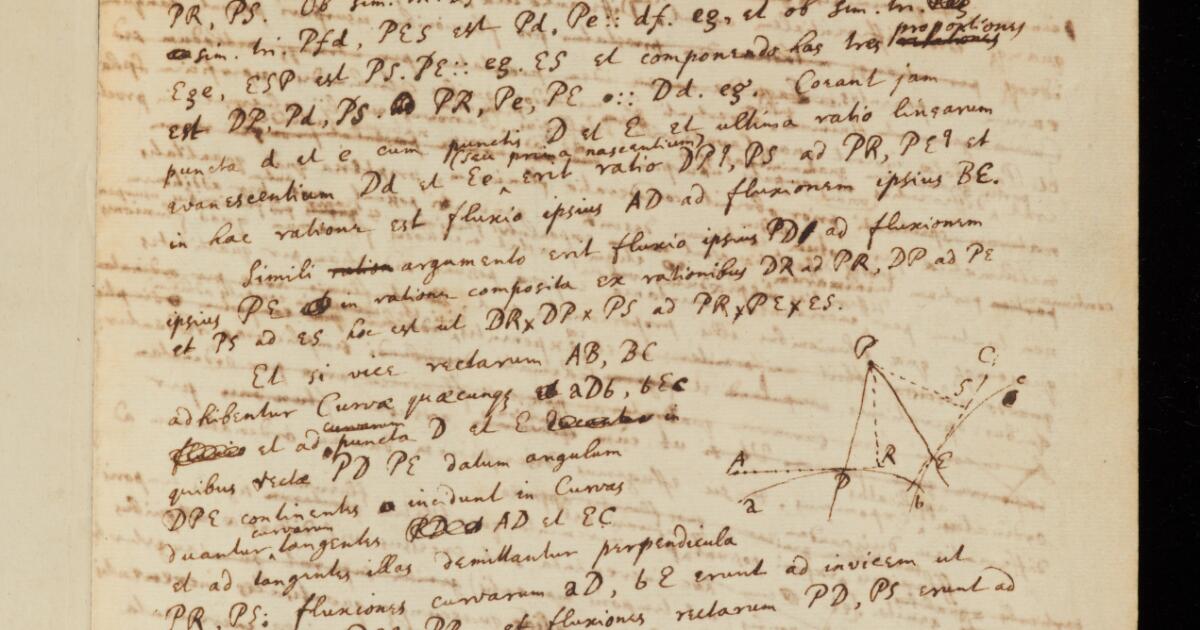 PR, PS. Ob sim.
sim. tri. Pfd, PES est Pd, Pe :: df. eg, et ob sim. tri.
proportiones
Ege, ESP est PS. PE :: eg. ES et componendo has tres rationes
est DP, Pd, PS. ad PR, Pe, PE :: Dd. eg. Coeant jam
puncta d et e cum punctis D et E et ultima ratio linearum
(seu prima nascentium)
evanescentium Dd et Ee erit ratio DPq, PS ad PR, PEq et
in hac ratione est fluxio ipsius AD ad fluxionem ipsius BE.
Simili ration argumento erit fluxio ipsius PD ad fluxionem
ipsius PE in ratione composita ex rationibus DR ad PR, DP ad PE
et PS ad ES hoc est ut DR x DP x PS ad PR x PE x ES.
Et si vice rectarum AB, BC
adhibentur Curvæ quæcunqe aDb, bEc
curvarum
et ad puncta D et E in
quibus rectæ PD PE datum angulum
DPE continentes incidunt in Curvas
curvarum
ducantur tangentes AD et EC
et ad tangentes illas demittantur perpendicula
PR, PS: fluxiones curvarum aD, bE erunt ad invicem ut
et fluxiones rectarum PD, PS erunt ad
P
C
S
c
A
R
E
D
a
b